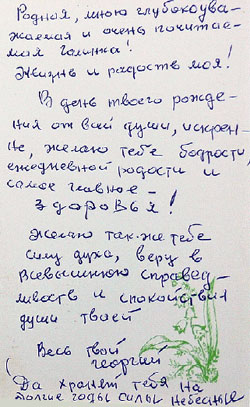 Родная, мною глубокоува-
жаемая и очень почитае-
мая Галинка!
Жизнь и радость моя!
В день твоего рожде-
ния от всей души, искрен-
не, желаю тебе бодрости,
ежедневной радости и
самое главное -
здоровья!
Желаю так-же тебе
силу духа, веру в
Всевышнюю справед-
ливость и спокойствия
души твоей
Весь твой
Георгий
Да хранят тебя на
долгие годы силы небесные